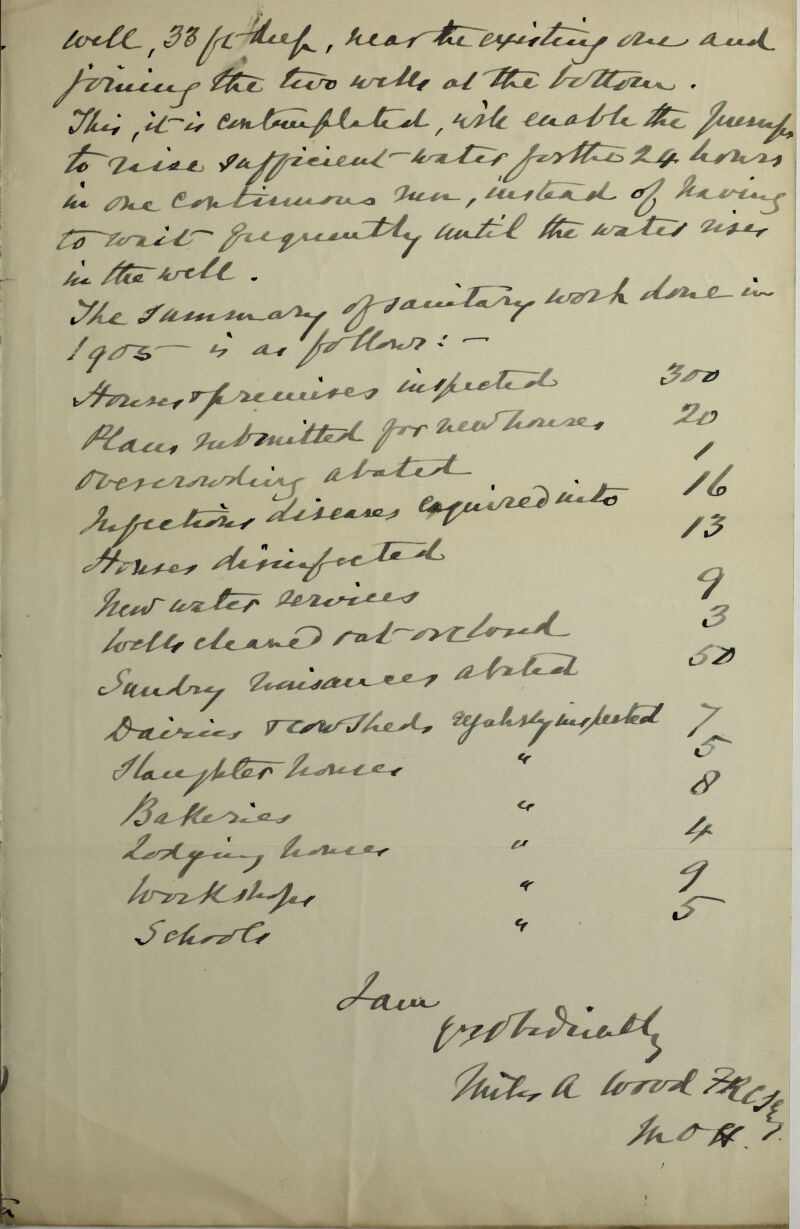 well, 33 ft deep, near the existing one and
joining the two wells at the bottom.
This, it is contemplated, will enable the pumps
to raise sufficient water for the 24 hours
in one continuous run, instead of having
to wait frequently until the water rises
in the well.
The summary of sanitary work done in
1905 is as follows:-
Houses & premises inspected 300
Plans submitted for new houses 20
Overcrowding abated 1
Infectious diseases enquired into 16
Houses disinfected 13
New water services 9
Wells cleaned out or closed 3
Sundry nuisances abated 50
Dairies & cowsheds regularly inspected 7
Slaughter houses " 5
Bakeries " 8
Lodging houses " 4
Workshops " 9
Schools " 5
I am
yrs obediently
Miles A Wood FRCS Ed
M O H.